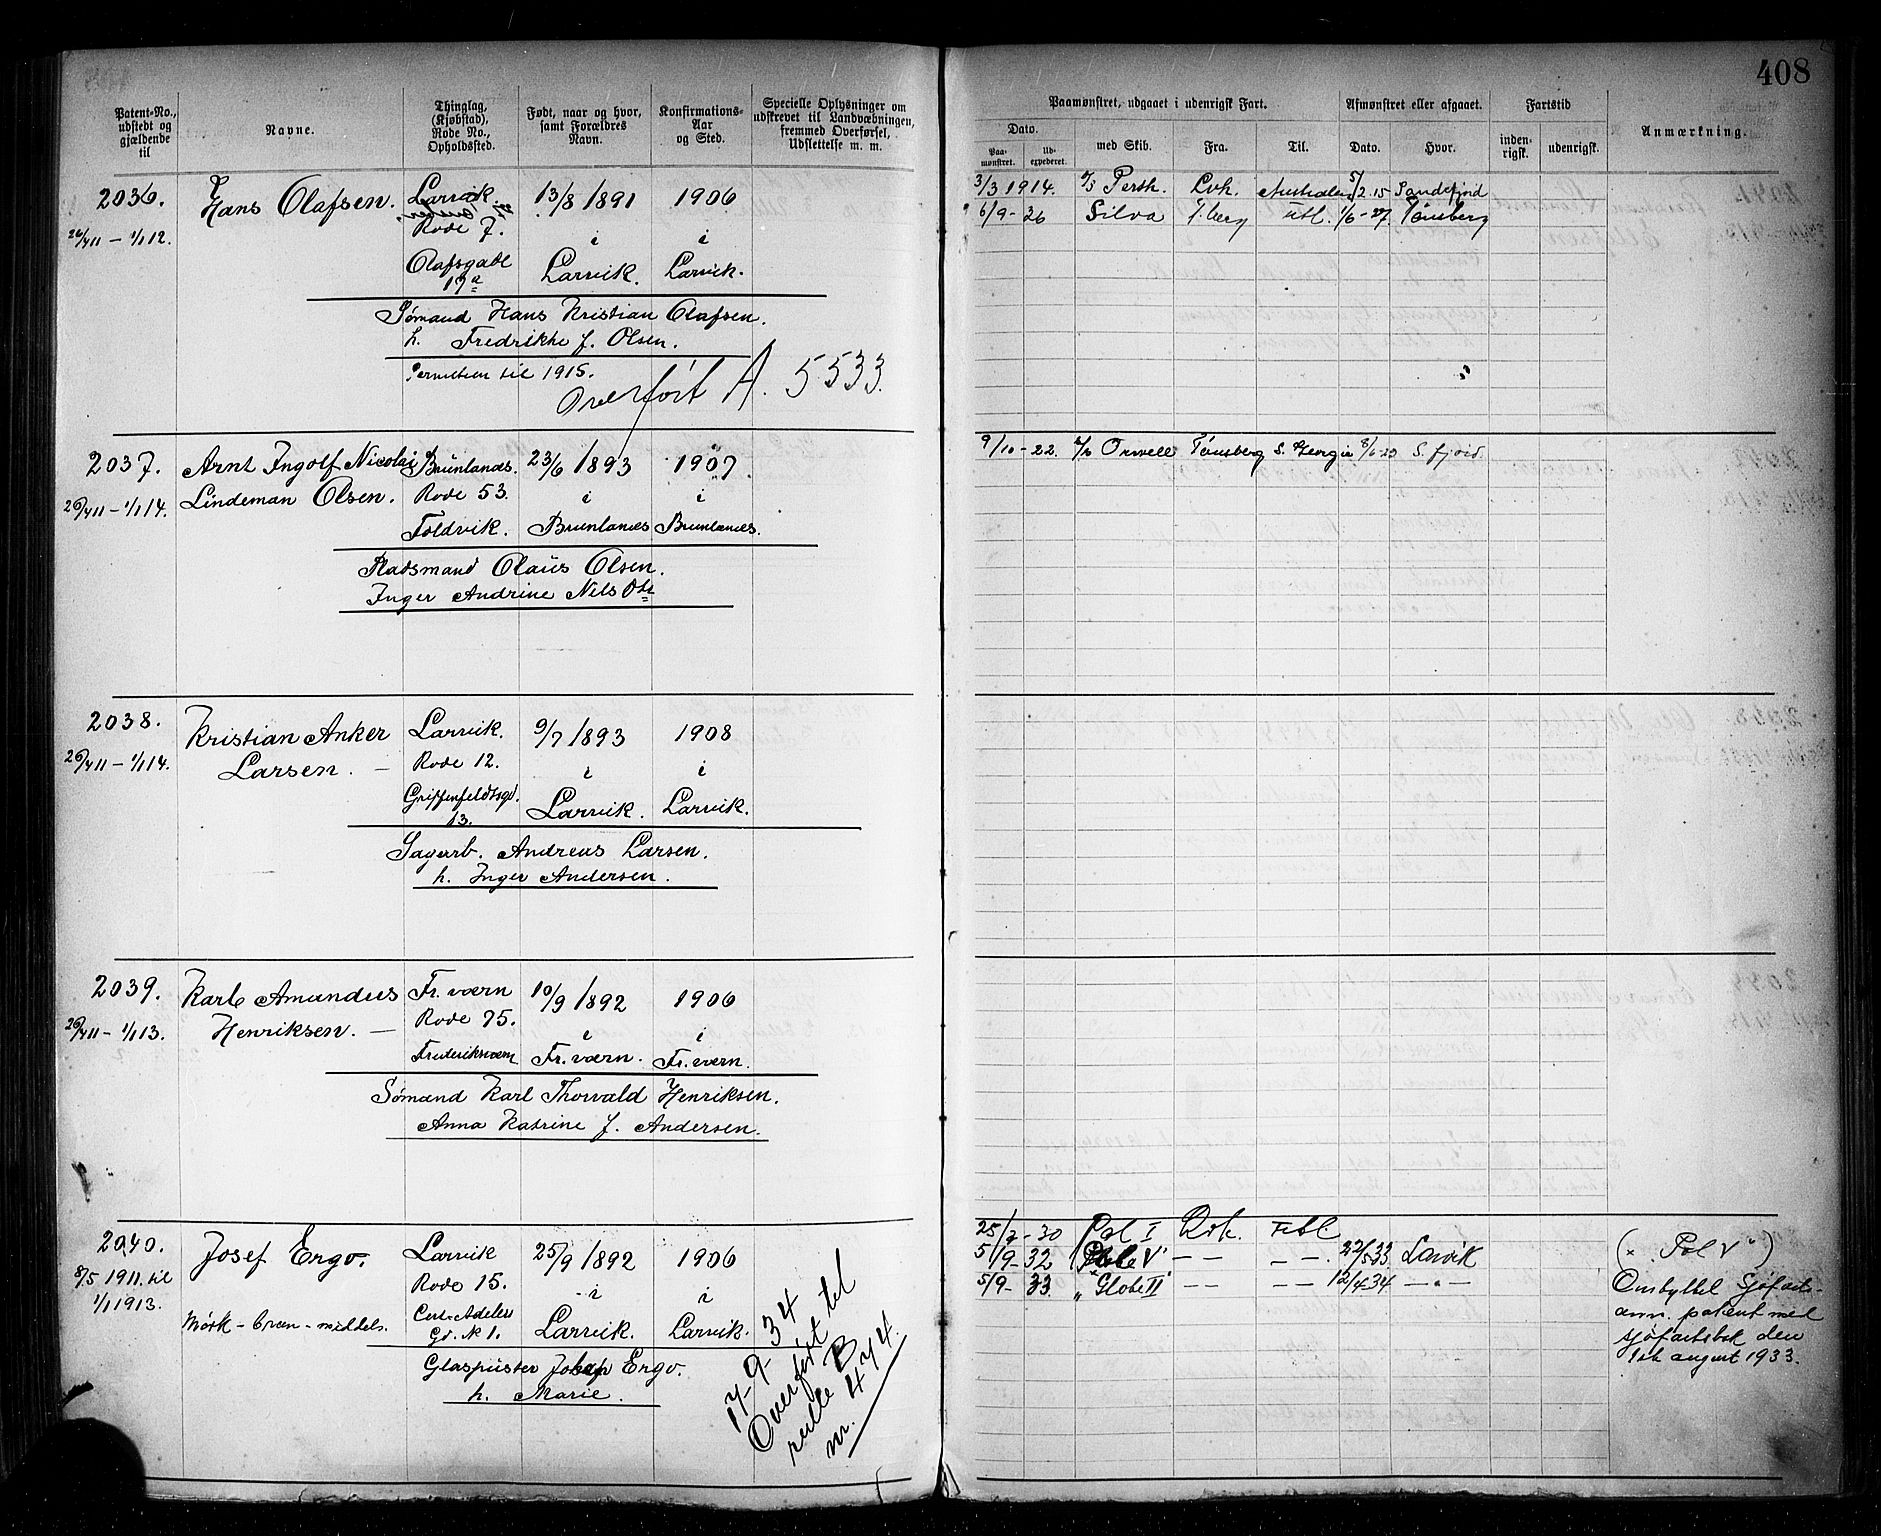 408
Patent-No., udstedt og gjældende til
Navne.
Thinglag, (Kjøbstad), Rode No., Opholdssted.
Født, naar og hvor, samt Forældres Navn.
Konfirmations-Aar og Sted.
Specielle Oplysninger om udskrevet til Landværbningen, fremmed Overførsel, Udslettelse m. m.
Paamønstret, udgaaet i udenrigsk Fart.
Dato.
Paa-mønstret.
Ud-expederet.
med Skib.
Fra.
Til.
Afmønstret eller afgaaet.
Dato.
Hvor.
Fartstid
inden-rigsk.
udenrigsk.
Anmærkning.
2036. Hans Olafsen. Larvik 13/8 1891 1906
Rode 7. i i
26/4 11 – 1/1 12.
Olafsgade 17a Larvik. Larvik.
Sømand Hans Kristian Olafsen.
h. Fredrikke f. Olsen.
til 1915.
Overført A. 5533.
3/3 1914. Perth. Lvk. Australien 5/2 15 Sandefjord
6/9 - 26 Silva T.berg Utl. 1/6 - 27 Tønsberg
2037. Arnt Ingolf Nicolai Brunlanæs. 23/6 1893 1907
26/4 11 – 1/1 14. Lindeman Olsen. Rode 53. i i
Foldvik. Brunlanæs Brunlanæs.
Pladsmand Olaus Olsen.
Inger Andrine Nils Dtr
9/10 - 22 Orwell Tønsberg S. Georgia 8/6-23 S.fjord
2038. Kristian Anker Larvik. 9/7 1893 1908
26/4 11 – 1/1 14. Larsen. – Rode 12. i i
Griffenfeldtsgd. 13. Larvik. Larvik.
Sagarb. Andreas Larsen.
h. Inger Andersen.
2039. Karl Amandus Fr.værn 10/9 1892 1906
26/4 11 – 1/1 13. Henriksen. – Rode 75. i i
Frederiksværn Fr.værn. Fr.værn.
Sømand Karl Thorvald Henriksen.
Anna Katrine f. Andersen.
2040. Josef Ergo. Larvik 25/9 1892 1906
8/5 1911 til 1/1 1913. Rode 15. i i
Mørk – brun – middels. Cort Adelers Gd. No 1. Larvik. Larvik.
Glaspuster Josef Ergo.
h. Marie.
17-9-34
Overført til
rulle B
nr. 474.
25/7 - 30 Pol I Lvk. Utl.
5/9 - 32 Pole V – – – –. 22/5 33 Larvik
5/9 - 33 „ Globe II – – – – 12/4 34 – „ –
(„ Pol V“)
Ombyttet Sjøfarts-
ann. patent med
sjøfartsbok den
1ste august 1933.